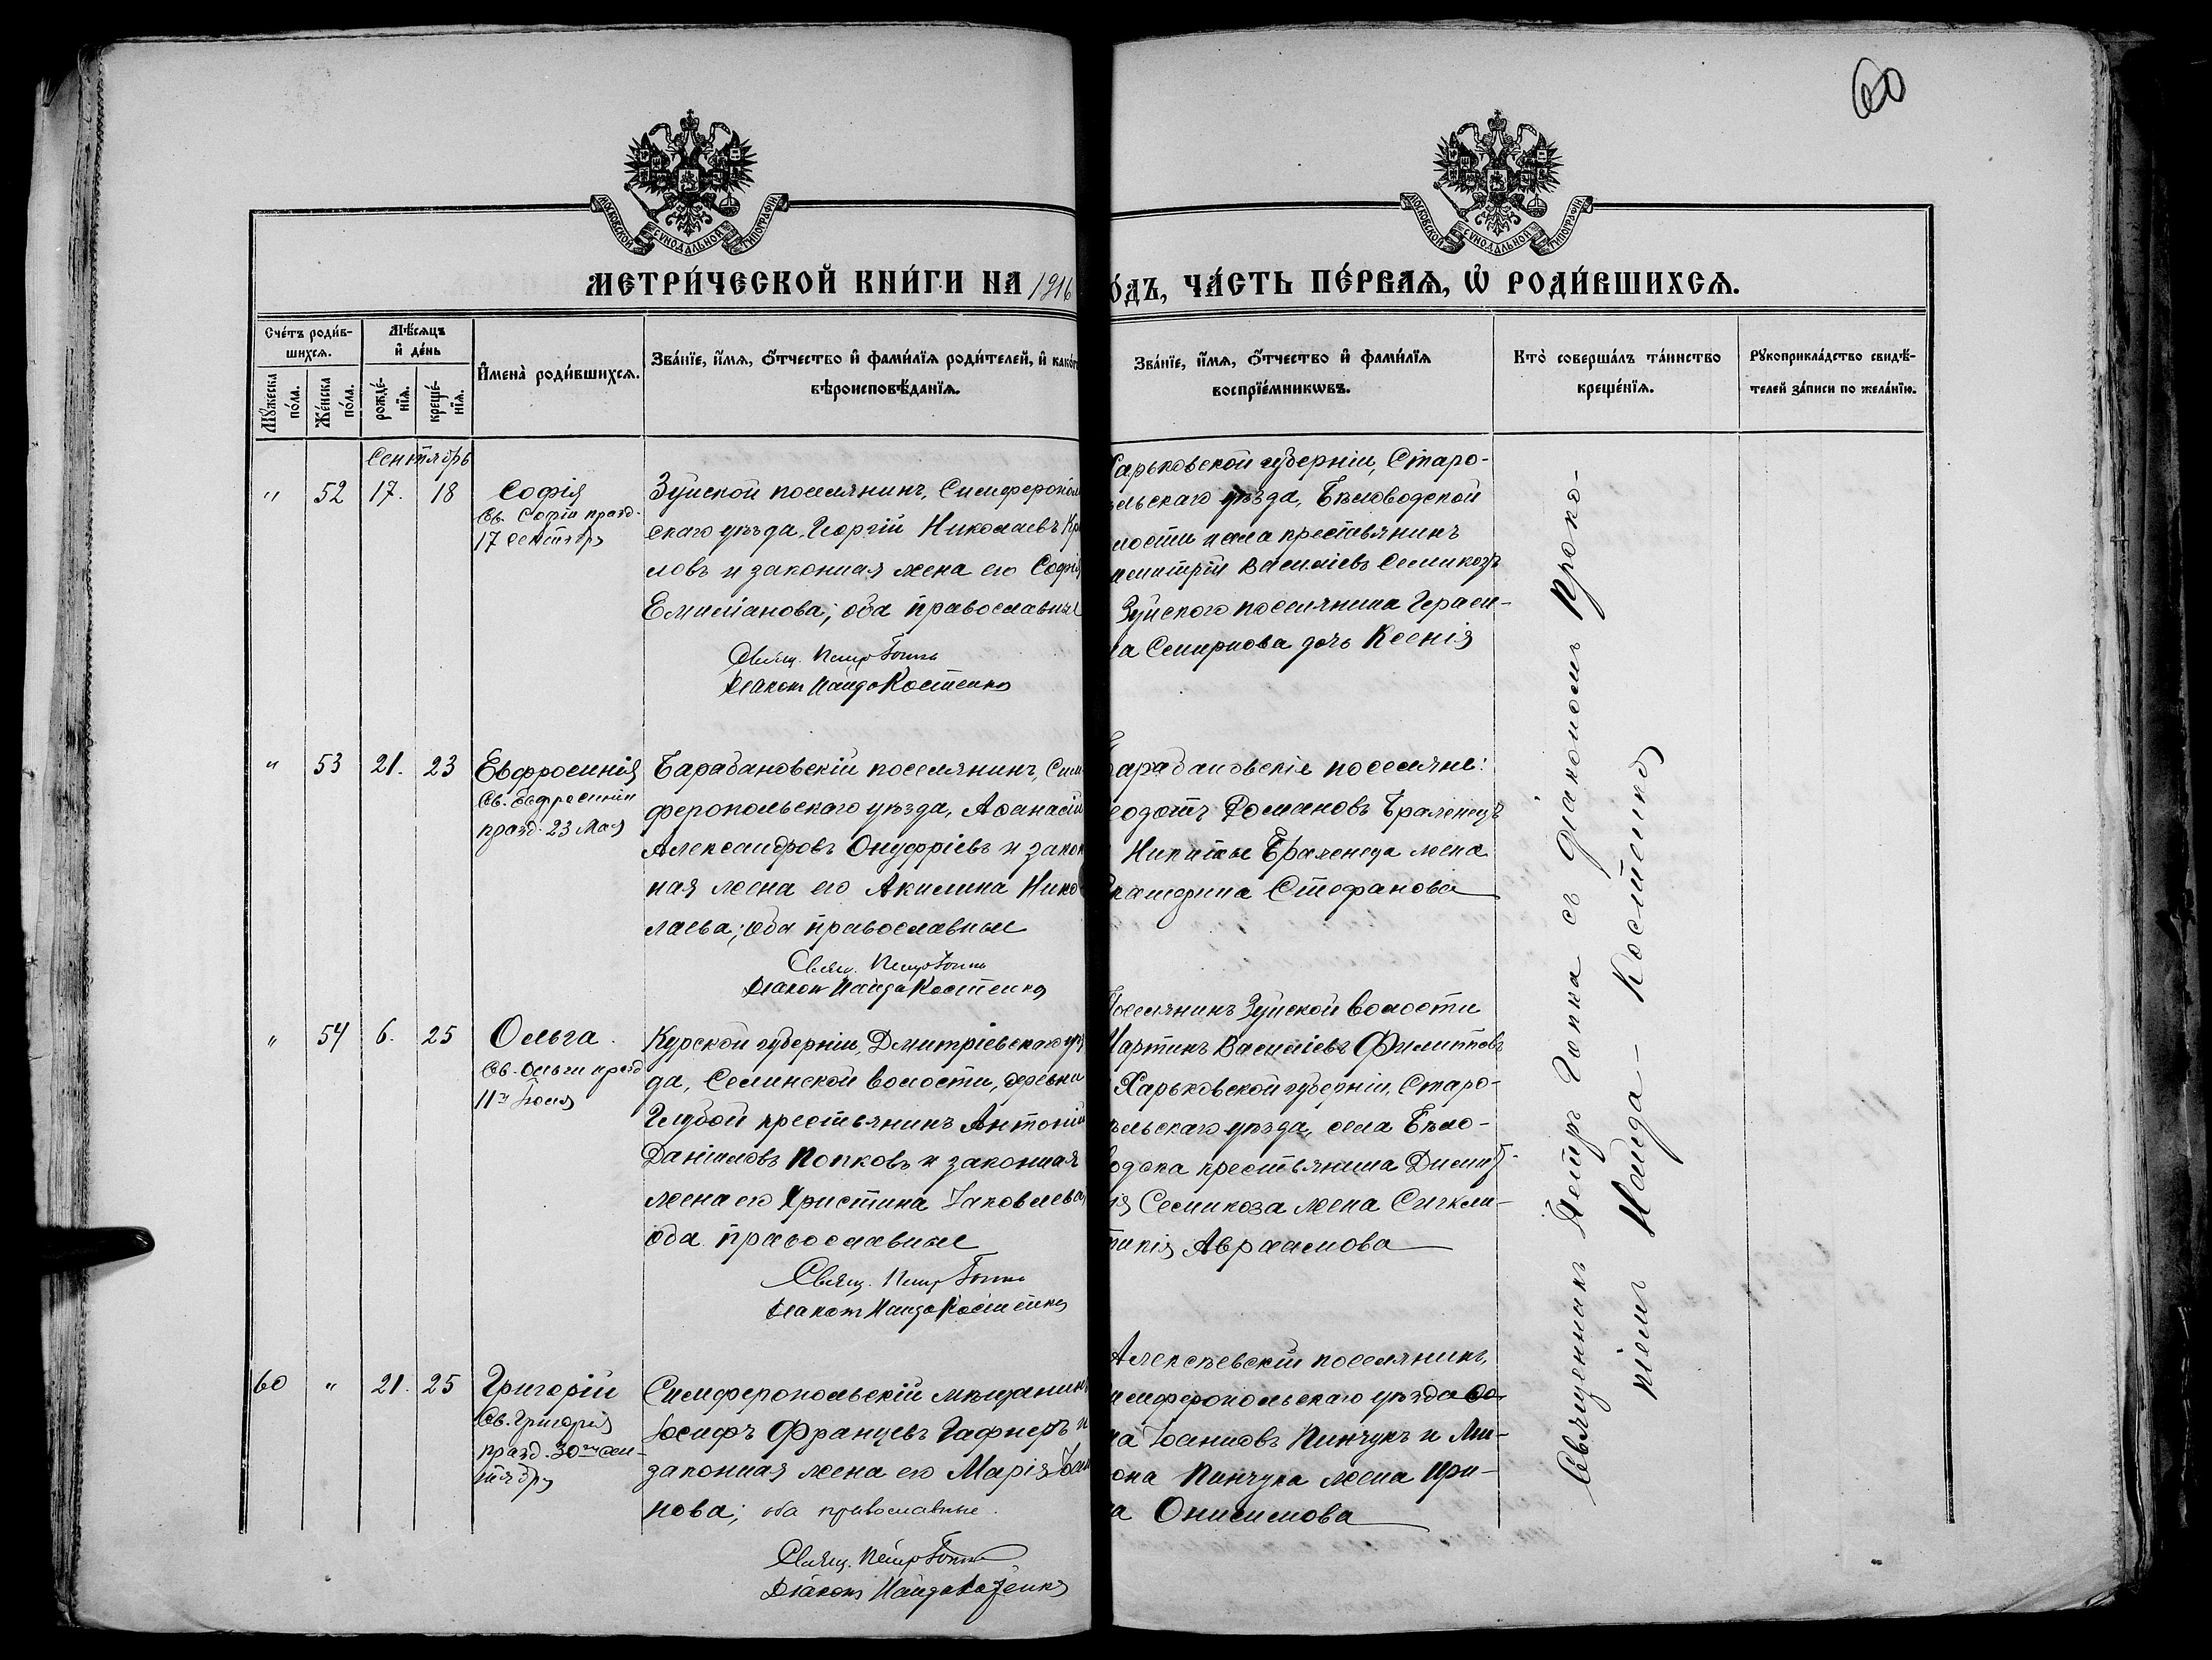 60
МОСКОВСКОЙ СѴНОДАЛЬНОЙ ТИПОГРАФІИ
МОСКОВСКОЙ СѴНОДАЛЬНОЙ ТИПОГРАФІИ
МЕТРИ́ЧЕСКОЙ КНИ́ГИ НА 1916
О́ДЪ, ЧА́СТЬ ПЕ́РВАѦ, Ѡ҆ РОДИ́ВШИХСѦ.
Сче́тъ роди́в-
шихсѧ.
Мꙋ́жеска
по́ла.
Же́нска
по́ла.
Мѣ́сѧцъ
и҆ де́нь
рожде́-
нїѧ.
креще́-
нїѧ.
И҆мена̀ роди́вшихсѧ.
Зва́нїе, и҆́мѧ, ѻ҆́тчество и҆ фами́лїѧ роди́телей, и҆ како́г
вѣроисповѣ́данїѧ.
Зва́нїе, и҆́мѧ, ѻ҆́тчество и҆ фами́лїѧ
воспрїе́мникѡвъ.
Кто̀ соверша́лъ та́инство
креще́нїѧ.
Рꙋкоприкла́дство свидѣ́-
телей за́писи по жела́нїю.
Сентябрь
" 52 17. 18
Софія
Св. Софіи празд.
17 Сентября
Зуйской поселянинъ, Симферополь
скаго уѣзда, Георгій Николаевъ Кр
ловъ и законная жена его Софія
Емиліанова; оба православные
Свящ. Петръ Гопка
Діаконъ Найда Костенко
Харьковской губерніи, Старо-
ельскаго уѣзда, Бѣловодской
лости села крестьянинъ
имитрій Василіевъ Семикозъ
Зуйскаго поселянина Гераси-
ма Смирнова дочь Ксенія
" 53 21. 23
Евфросинія
Св. Евфросиніи
празд. 23 Мая
Барабановскій поселянинъ, Сим-
феропольскаго уѣзда, Аѳанасій
Александровъ Онуфріевъ и закон
ная жена его Акилина Нико
лаева; оба православные
Свящ. Петръ Гопка
Діаконъ Найда Костенко
Барабановскіе поселяне:
еодотъ Романовъ Браженецъ
Никиты Браженца жена
Екатерина Стефанова
" 54 6. 25
Ольга
Св. Ольги празд
11го Іюля
Курской губерніи, Дмитріевскаго уѣз
да, Селинской волости, деревни
Глубой крестьянинъ Антоній
Даніиловъ Попковъ и законная
жена его Христина Іаковлева,
оба православные
Свящ. Петръ Гопка
Діаконъ Найда Костенко
Поселянинъ Зуйской волости
Мартинъ Василіевъ Филипповъ
Харьковской губерніи, Старо-
бѣльскаго уѣзда, села Бѣло-
водска крестьянина Димит-
рія Семикоза жена Сигкли-
тикія Авраамова
60 " 21. 25
Григорій
Св. Григорія
празд. 30го сен-
тября
Симферопольскій мѣщанинъ
Іосифъ Францевъ Гафнеръ и
законная жена его Марія Іоан
нова; оба православные.
Свящ. Петръ Гопка
Діаконъ Найда Костенко
Алексѣевскій поселянинъ,
имферопольскаго уѣзда Ѳо-
ма Іоанновъ Пинчукъ и Ми-
рона Пинчука жена Ири-
на Онисимова
Священникъ Петръ Гопка съ діакономъ Проко-
піемъ Найда-Костенко